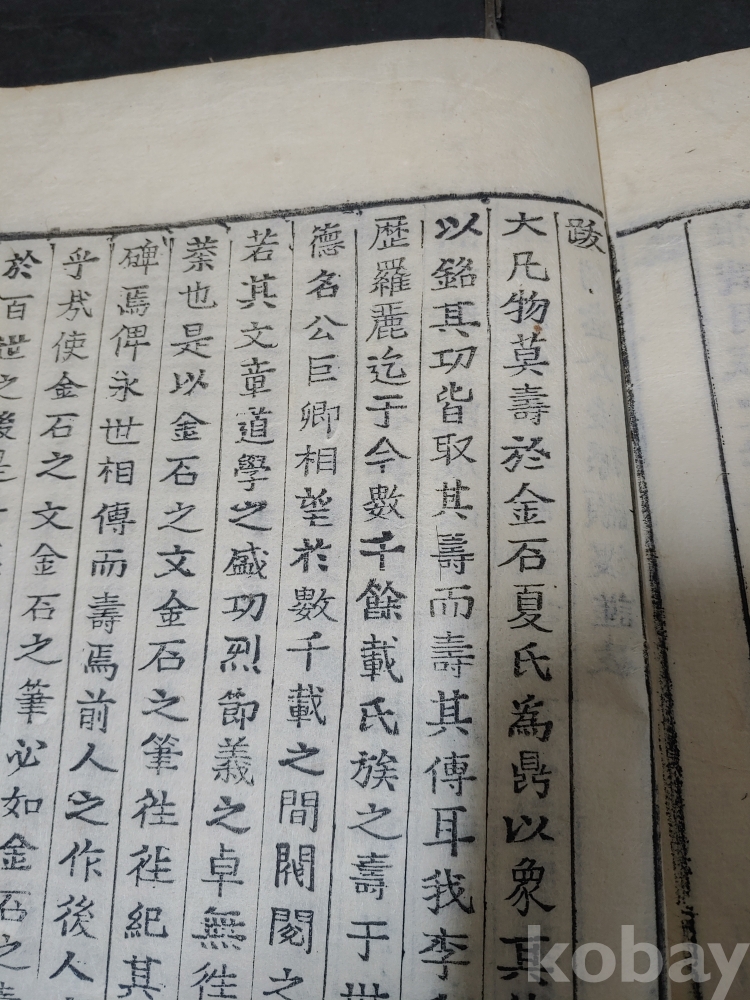 跋
大凡物莫壽於金石夏氏為鼎以象其
以銘其功皆取其壽而壽其傳耳我李
歷羅麗迄于今數千餘載氏族之壽于世
德名公巨卿相望於數千載之間閥閱之
若其文章道學之盛功烈節義之卓無徃
業也是以金石之文金石之筆徃徃紀其
碑焉俾永世相傳而壽焉前人之作後人
乎然使金石之文金石之筆必如金石之
於百世之後是
kobay